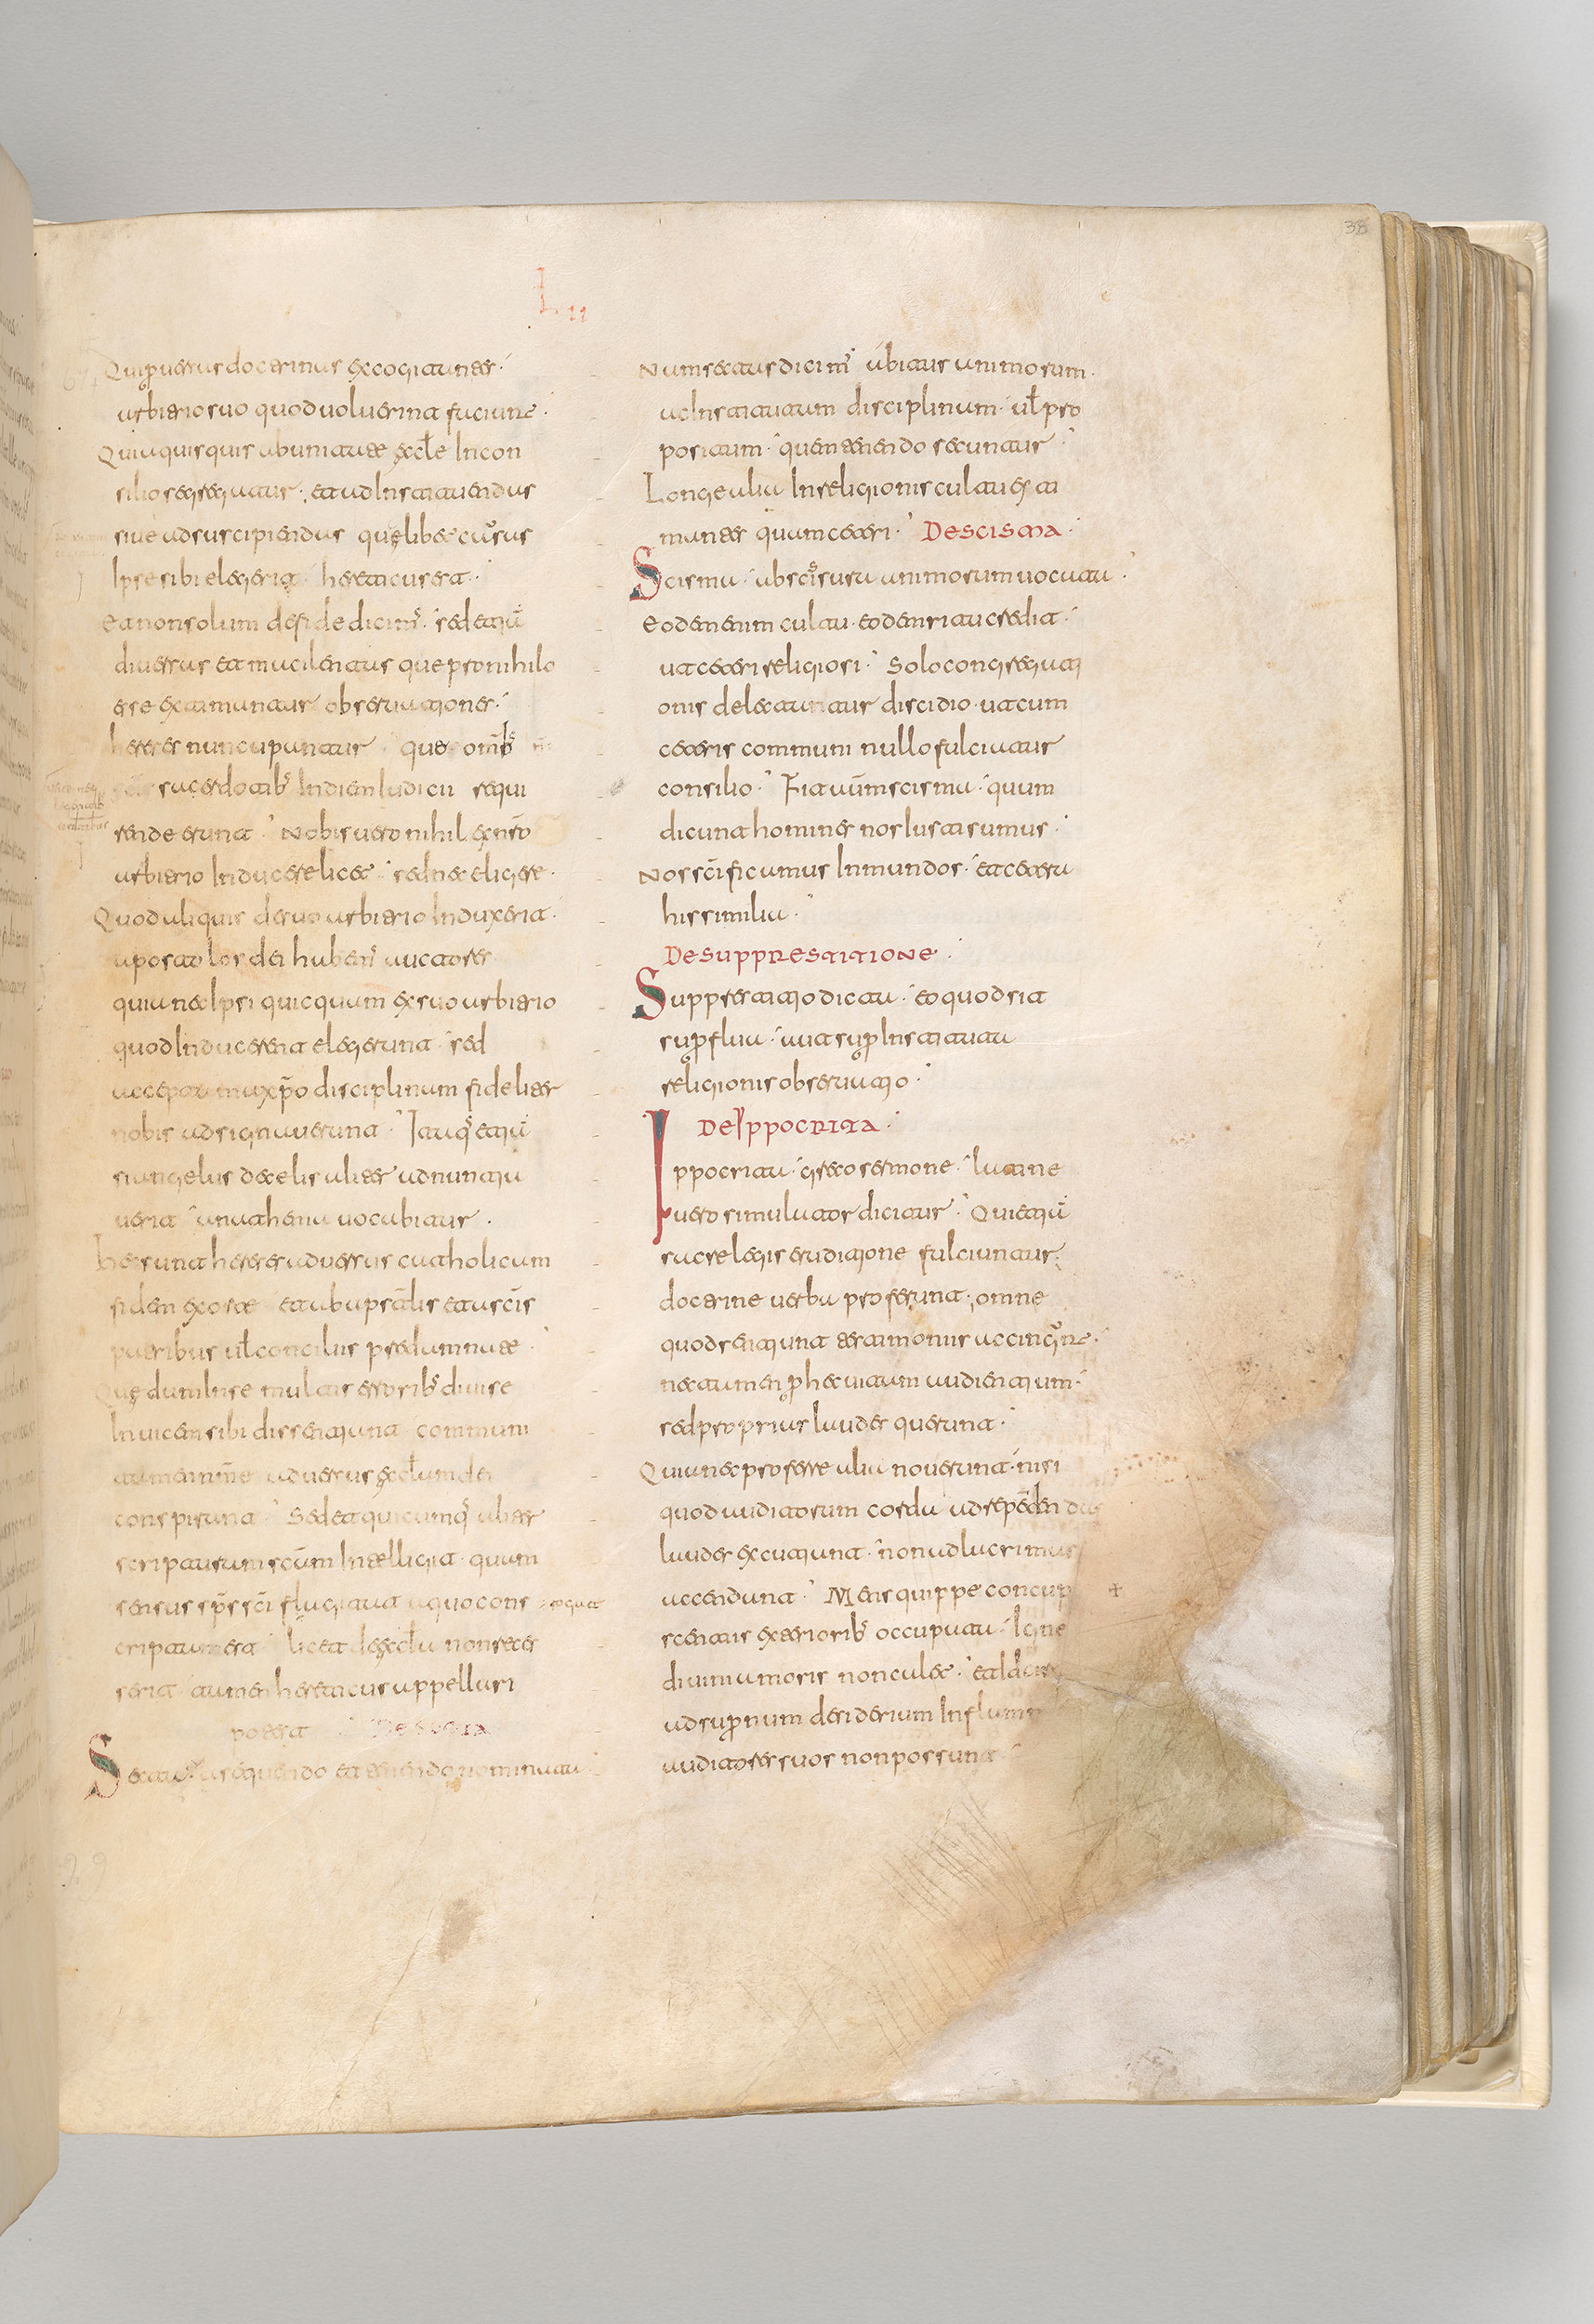 38
L II
Qui p̱uersas doctrinas excogitantes·
arbitrio suo quod uoluerint faciunt·
Quia quisquis ab unitate eccłe in con
silio segregatur· et ad instituendas
siue ad suscipiendas quęlibet cursus
ipse sibi elegerit· hereticus est·
Et non solum de fide dicimus· sed etiā
diuersas et macilentas que pro nihilo
esse extimantur obseruationes·
hereses nuncupantur que omnibꝰ
sacerdotibꝰ in diem iudicii sequi
sende erunt· Nobis uero nihil ex nr̄o
arbitrio inducere licet· sed nec eligere·
Quod aliquis de suo arbitrio induxerit·
apostolos dei habemꝰ auctores
quia nec ipsi quicquam ex suo arbitrio
quod inducerent elegerunt· sed
acceptam a xp̄o disciplinam fideliter
nobis adsignauerunt· Itaqꝫ etiā
si angelus de celis aliter adnuntia
uerit anathema uocabitur·
hec sunt hereses aduersus catholicam
fidem exorte et ab apostolis et a sc̄is
patribus uł conciliis predamnate·
Quę dum in se multis erroribꝰ diuise
inuicem sibi dissentiunt communi
tamen nomine aduersus eccłam dei
conspirant· Sed et quicumqꝫ aliter
scripturam sc̄am intelligit· quam
sensus sps̄ sc̄i flagitat a quo cons
cripta est· licet de eccła non reces
serit tamen hereticus appellari
potest· De secta
Secta a sequendo et tenendo nominata·
Nam sectas dicimꝰ abitus animorum·
ac instituta tum disciplinam· uł pro
positum· quem tenendo secuntur·
Longe alia in religionis culta exti
mantes quam ceteri· De scisma·
Scisma· ab scissura animorum uocata·
Eodem enim culta· eodem rita credit·
ut ceteri religiosi· Solo congregati
onis delectantur discidio· ut cum
ceteris communi nullo fulciatur
consilio· Fit aūm scisma· quum
dicunt homines nos iusti sumus·
Nos sc̄ificamus inmundos· et cetera
his similia·
De suppprestitione·
Supprestitio dicta· eo quod sit
sup̱flua· aut sup̱ instituta
religionis obseruatio·
De yppocrita·
Ippocrita· greco sermone· latine
uero simulator dicitur· Qui etiā
sacre legis eruditione fulciuntur·
doctrine uerba proferunt· omne
quod sentiunt testimoniis accingunt·
nec tamen p̱ hec uitam audientium·
sed proprias laudes querunt·
Quia nec proferre alia nouerunt· nisi
quod auditorum corda ad rependendas
laudes excutiunt· non ad lacrimas
accendunt· Mens quippe concupi
scentiis exterioribꝰ occupata· igne
diuini amoris non calet· et idcirco
ad sup̱num desiderium inflammare
auditores suos non possunt·